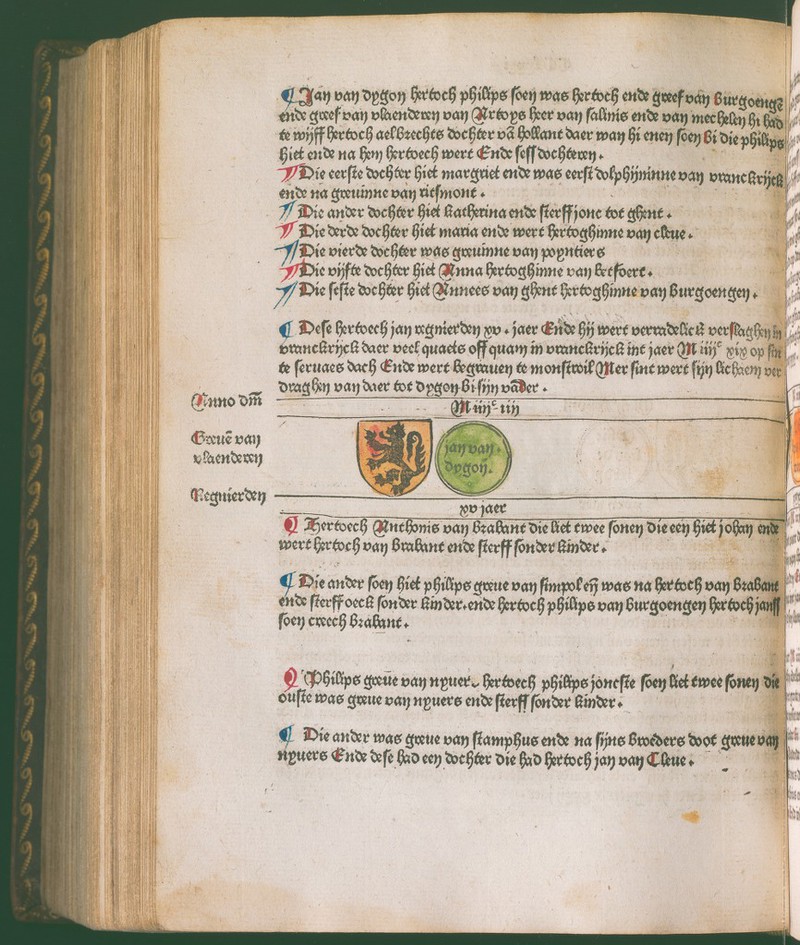 Jan van dygon hertoch philips soen was hertoch ende greef van Burgoengē
ende greef van vlaenderen van Artoys heer van salinis ende van mechelen hi had
te wijff hertoch aelbrechts dochter vā hollant daer wan hi enen soen Bi die philips
hiet ende na hem hertoech wert Ende sess dochteren.
Die eerste dochter hiet margriet ende was eerst dolphijninne van vranckrijck
ende na greuinne van ritsmont.
Die ander dochter hiet katherina ende sterff jonc tot ghent.
Die derde dochter hiet maria ende wert hertoghinne van cleue.
Die vierde dochter was greuinne van poyntiers
Die vijfte dochter hiet Anna hertoghinne van betfoert.
Die seste dochter hiet Annees van ghent hertoghinne van Burgoengen.
Dese hertoech jan regnierden xv. jaer Ende hij wert verradelick verslaghen in
vranckrijck daer veel quaets off quam in vranckrijck int jaer M iiijc xix op sin
te seruaes dach Ende wert begrauen te monstroil Mer sint wert sijn lichaem ver
draghen van daer tot dygon bi sijn vader.
Anno dm̄ M iiijc iiij
Greuē van
vlaenderen
jan van.
dygon.
Regnierden xv jaer
Hertoech Anthonis van Brabant die liet twee sonen die een hiet johan ende
wert hertoch van Brabant ende sterff sonder kinder.
Die ander soen hiet philips greue van simpol eñ was na hertoch van Brabant
ende sterff oeck sonder kinder. ende hertoch philips van Burgoengen hertoch janss
soen creech Brabant.
Philips greue van nyuers hertoech philips joncste soen liet twee sonen die
ouste was greue van nyuers ende sterff sonder kinder.
Die ander was greue van stamphus ende na sijns broeders doot greue van
nyuers Ende dese had een dochter die had hertoch jan van Cleue.